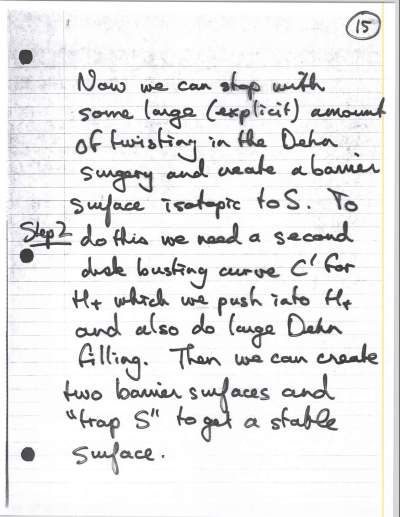 15
Now we can stop with
some large (explicit) amount
of twisting in the Dehn
surgery and create a barrier
surface isotopic to S. To
Step 2 do this we need a second
disk busting curve C' for
H+ which we push into H+
and also do large Dehn
filling. Then we can create
two barrier surfaces and
"trap S" to get a stable
surface.